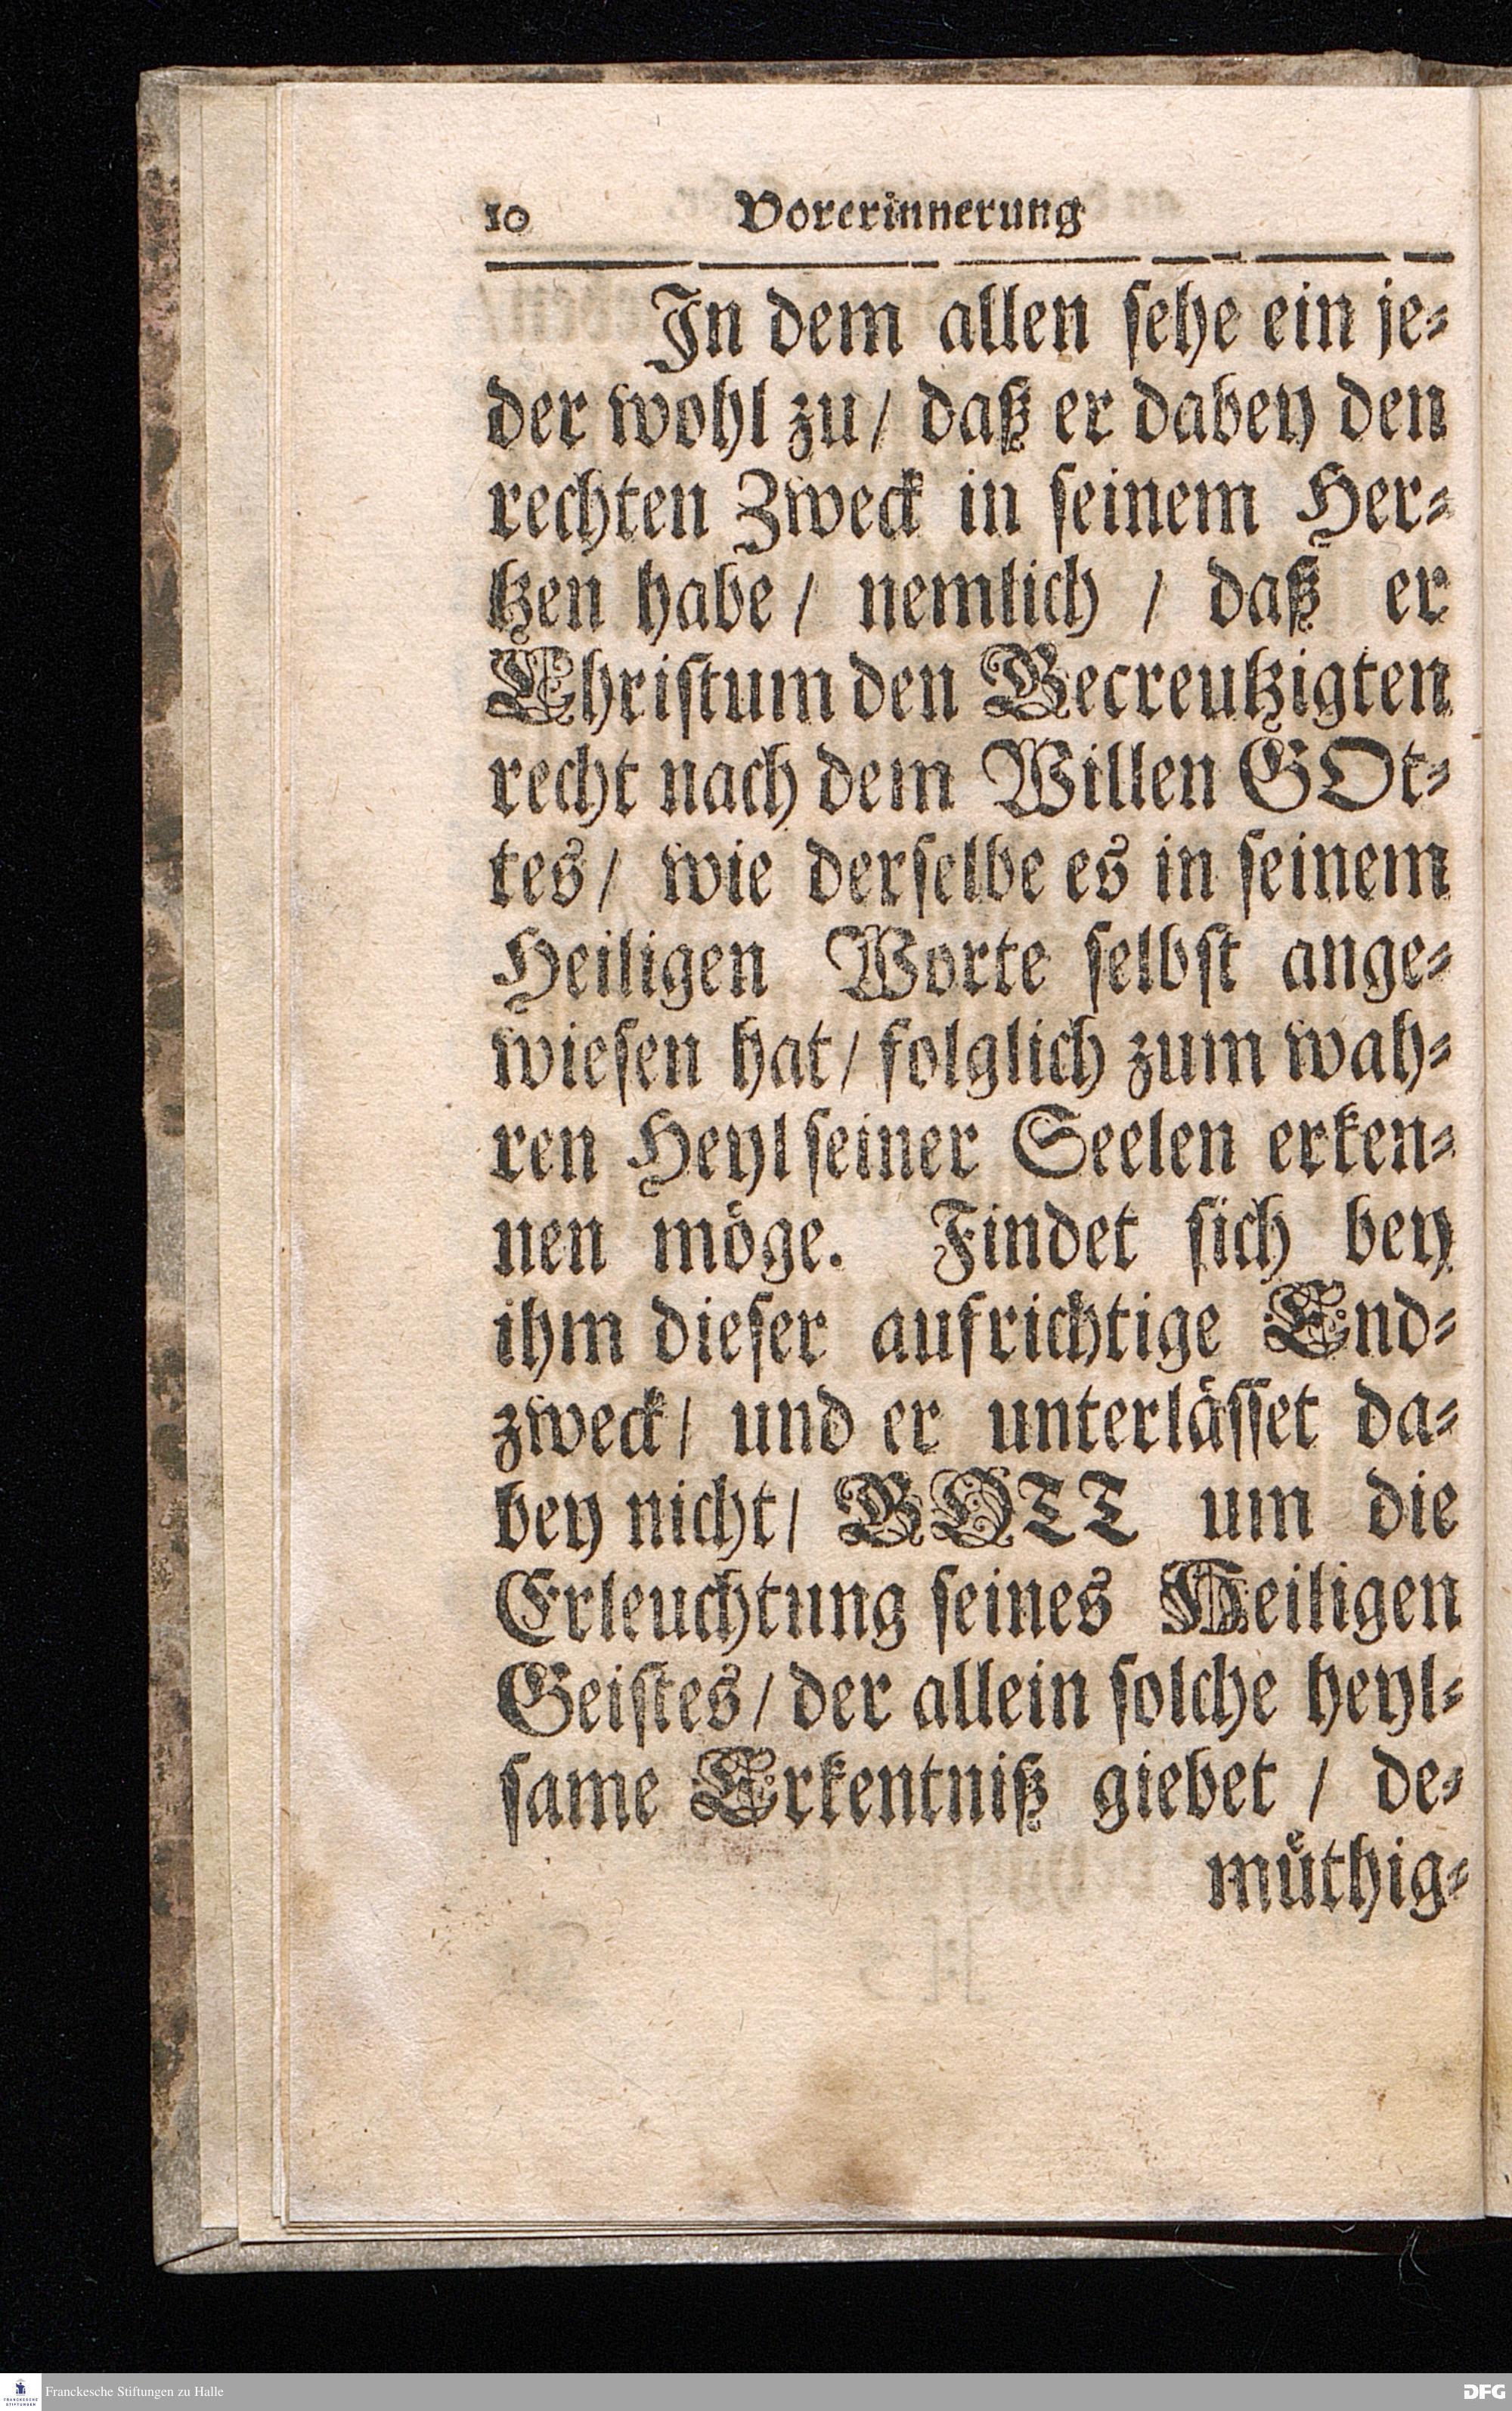 10 Vorerinnerung
In dem allen sehe ein je-
der wohl zu/ daß er dabey den
rechten Zweck in seinem Her-
tzen habe/ nemlich / daß er
Christum den Gecreutzigten
recht nach dem Willen GOt-
tes/ wie derselbe es in seinem
Heiligen Worte selbst ange-
wiesen hat/ folglich zum wah-
ren Heyl seiner Seelen erken-
nen möge. Findet sich bey
ihm dieser aufrichtige End-
zweck/ und er unterlässet da-
bey nicht/ GOTT um die
Erleuchtung seines Heiligen
Geistes/ der allein solche heyl-
same Erkentniß giebet / de-
müthig-
FRANCKESCHE STIFTUNGEN
Franckesche Stiftungen zu Halle
DFG